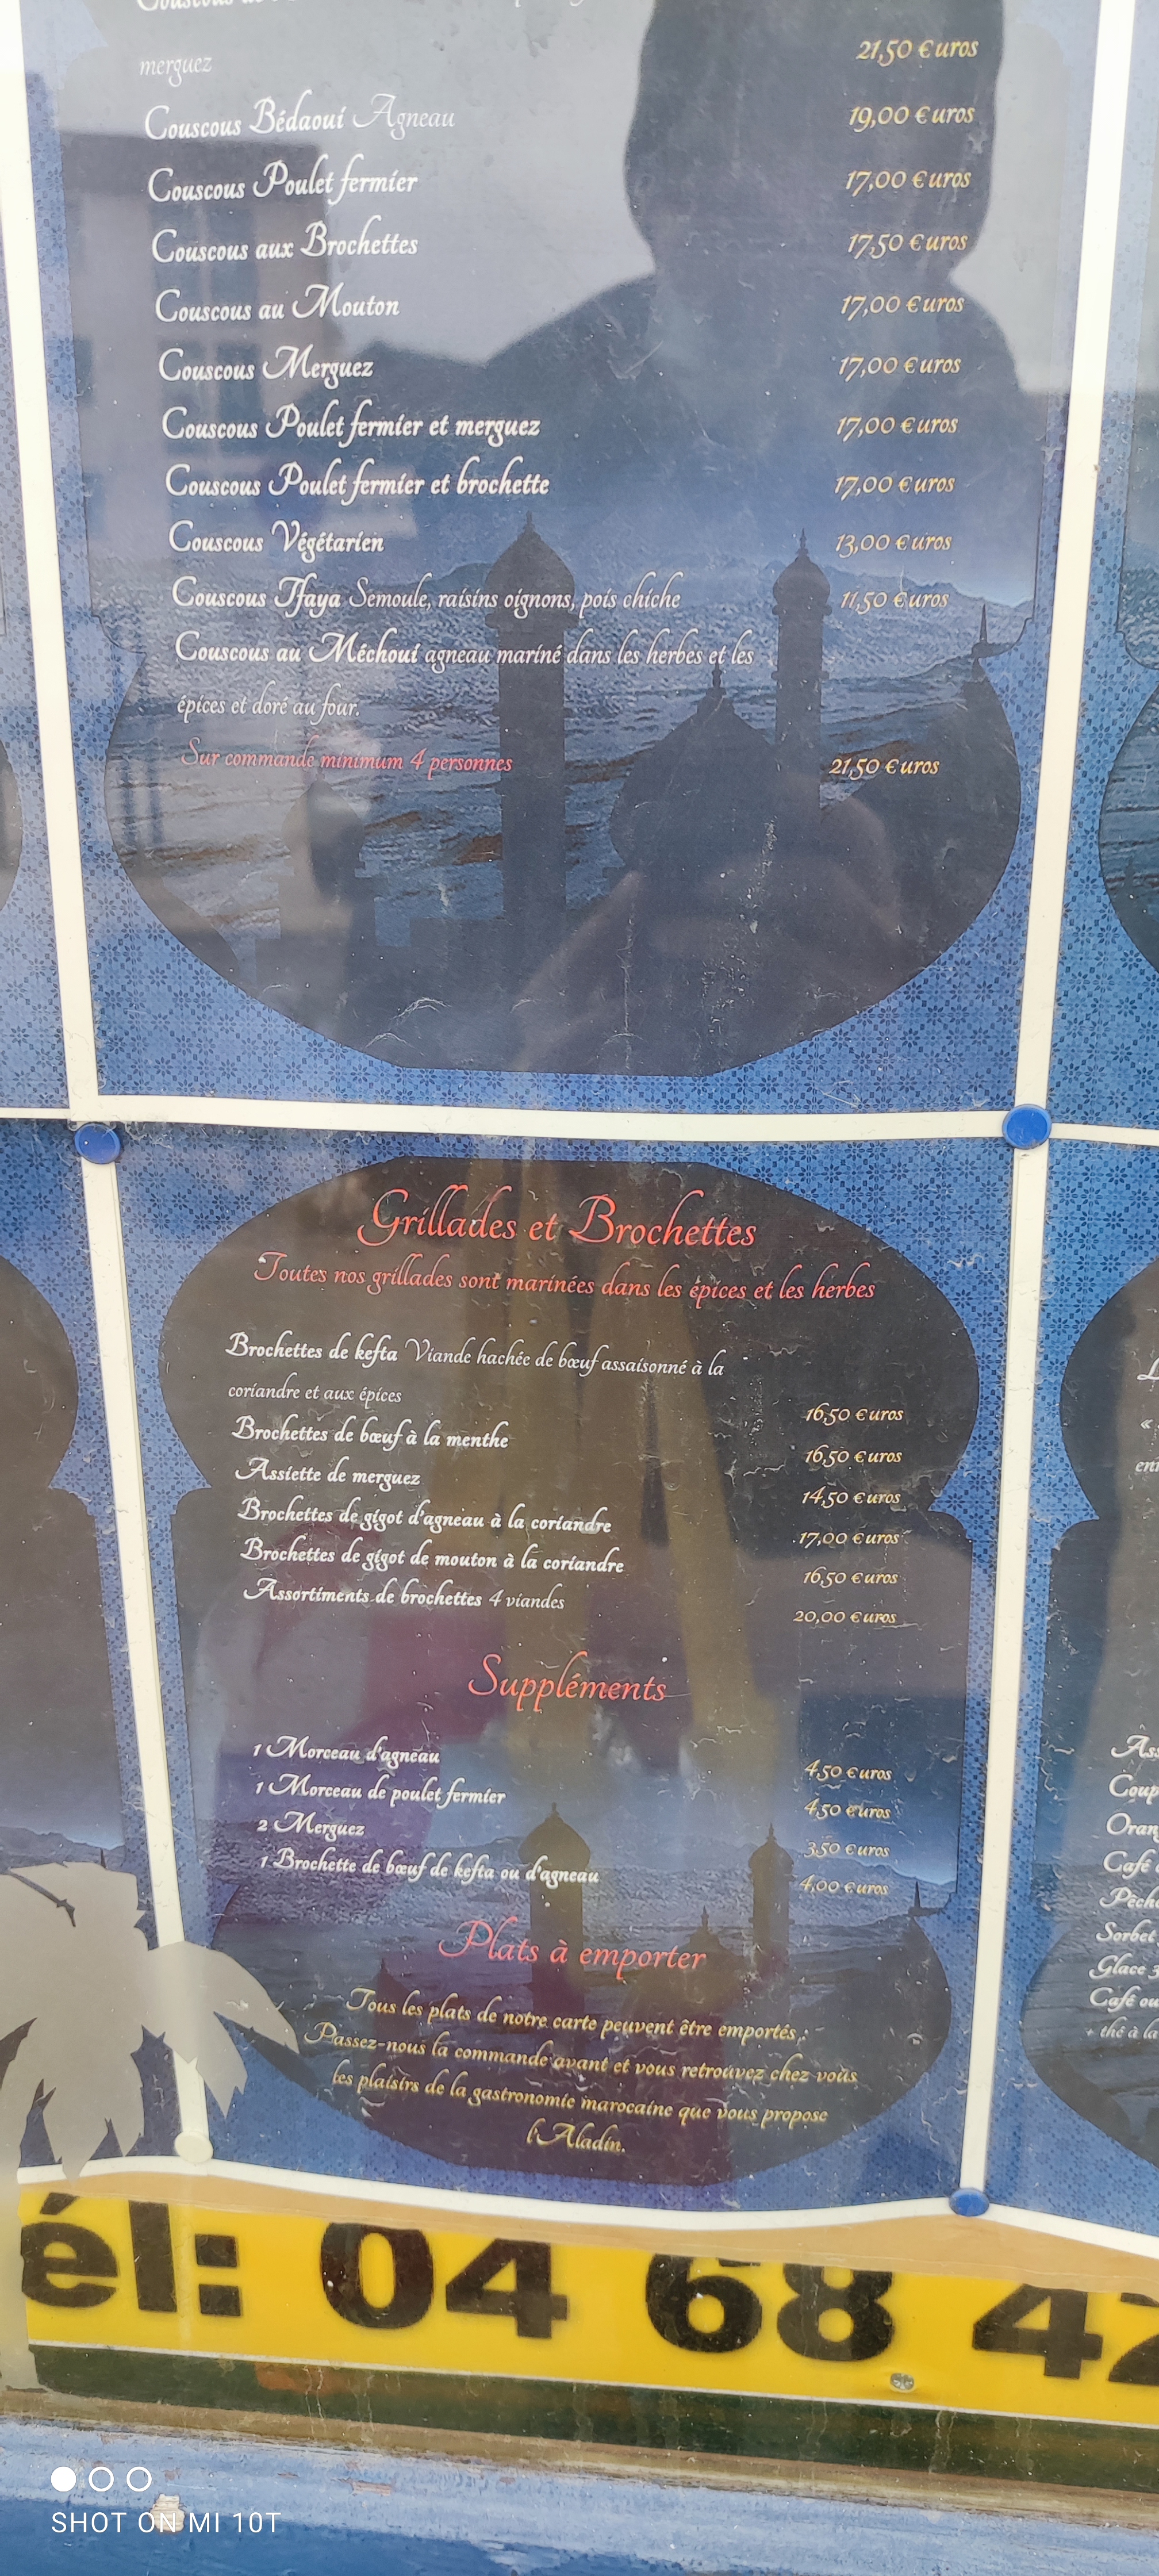 merguez
21,50 €uros
Couscous Bédaoui Agneau 19,00 €uros
Couscous Poulet fermier 17,00 €uros
Couscous aux Brochettes 17,50 €uros
Couscous au Mouton 17,00 €uros
Couscous Merguez 17,00 €uros
Couscous Poulet fermier et merguez 17,00 €uros
Couscous Poulet fermier et brochette 17,00 €uros
Couscous Végétarien 13,00 €uros
Couscous Tfaya Semoule, raisins oignons, pois chiche 11,50 €uros
Couscous au Méchoui agneau mariné dans les herbes et les
épices et doré au four.
Sur commande minimum 4 personnes 21,50 €uros
Grillades et Brochettes
Toutes nos grillades sont marinées dans les épices et les herbes
Brochettes de kefta Viande hachée de bœuf assaisonné à la
coriandre et aux épices 16,50 €uros
Brochettes de bœuf à la menthe 16,50 €uros
Assiette de merguez 14,50 €uros
Brochettes de gigot d'agneau à la coriandre 17,00 €uros
Brochettes de gigot de mouton à la coriandre 16,50 €uros
Assortiments de brochettes 4 viandes 20,00 €uros
Suppléments
1 Morceau d'agneau 4,50 €uros
1 Morceau de poulet fermier 4,50 €uros
2 Merguez 3,50 €uros
1 Brochette de bœuf de kefta ou d'agneau 4,00 €uros
Plats à emporter
Tous les plats de notre carte peuvent être emportés.
Passez-nous la commande avant et vous retrouvez chez vous
les plaisirs de la gastronomie marocaine que vous propose
l'Aladin.
Coup
Oran
Café
Pêche
Sorbet
Glace 3
Café ou
+ thé à la
él: 04 68 42
SHOT ON MI 10T